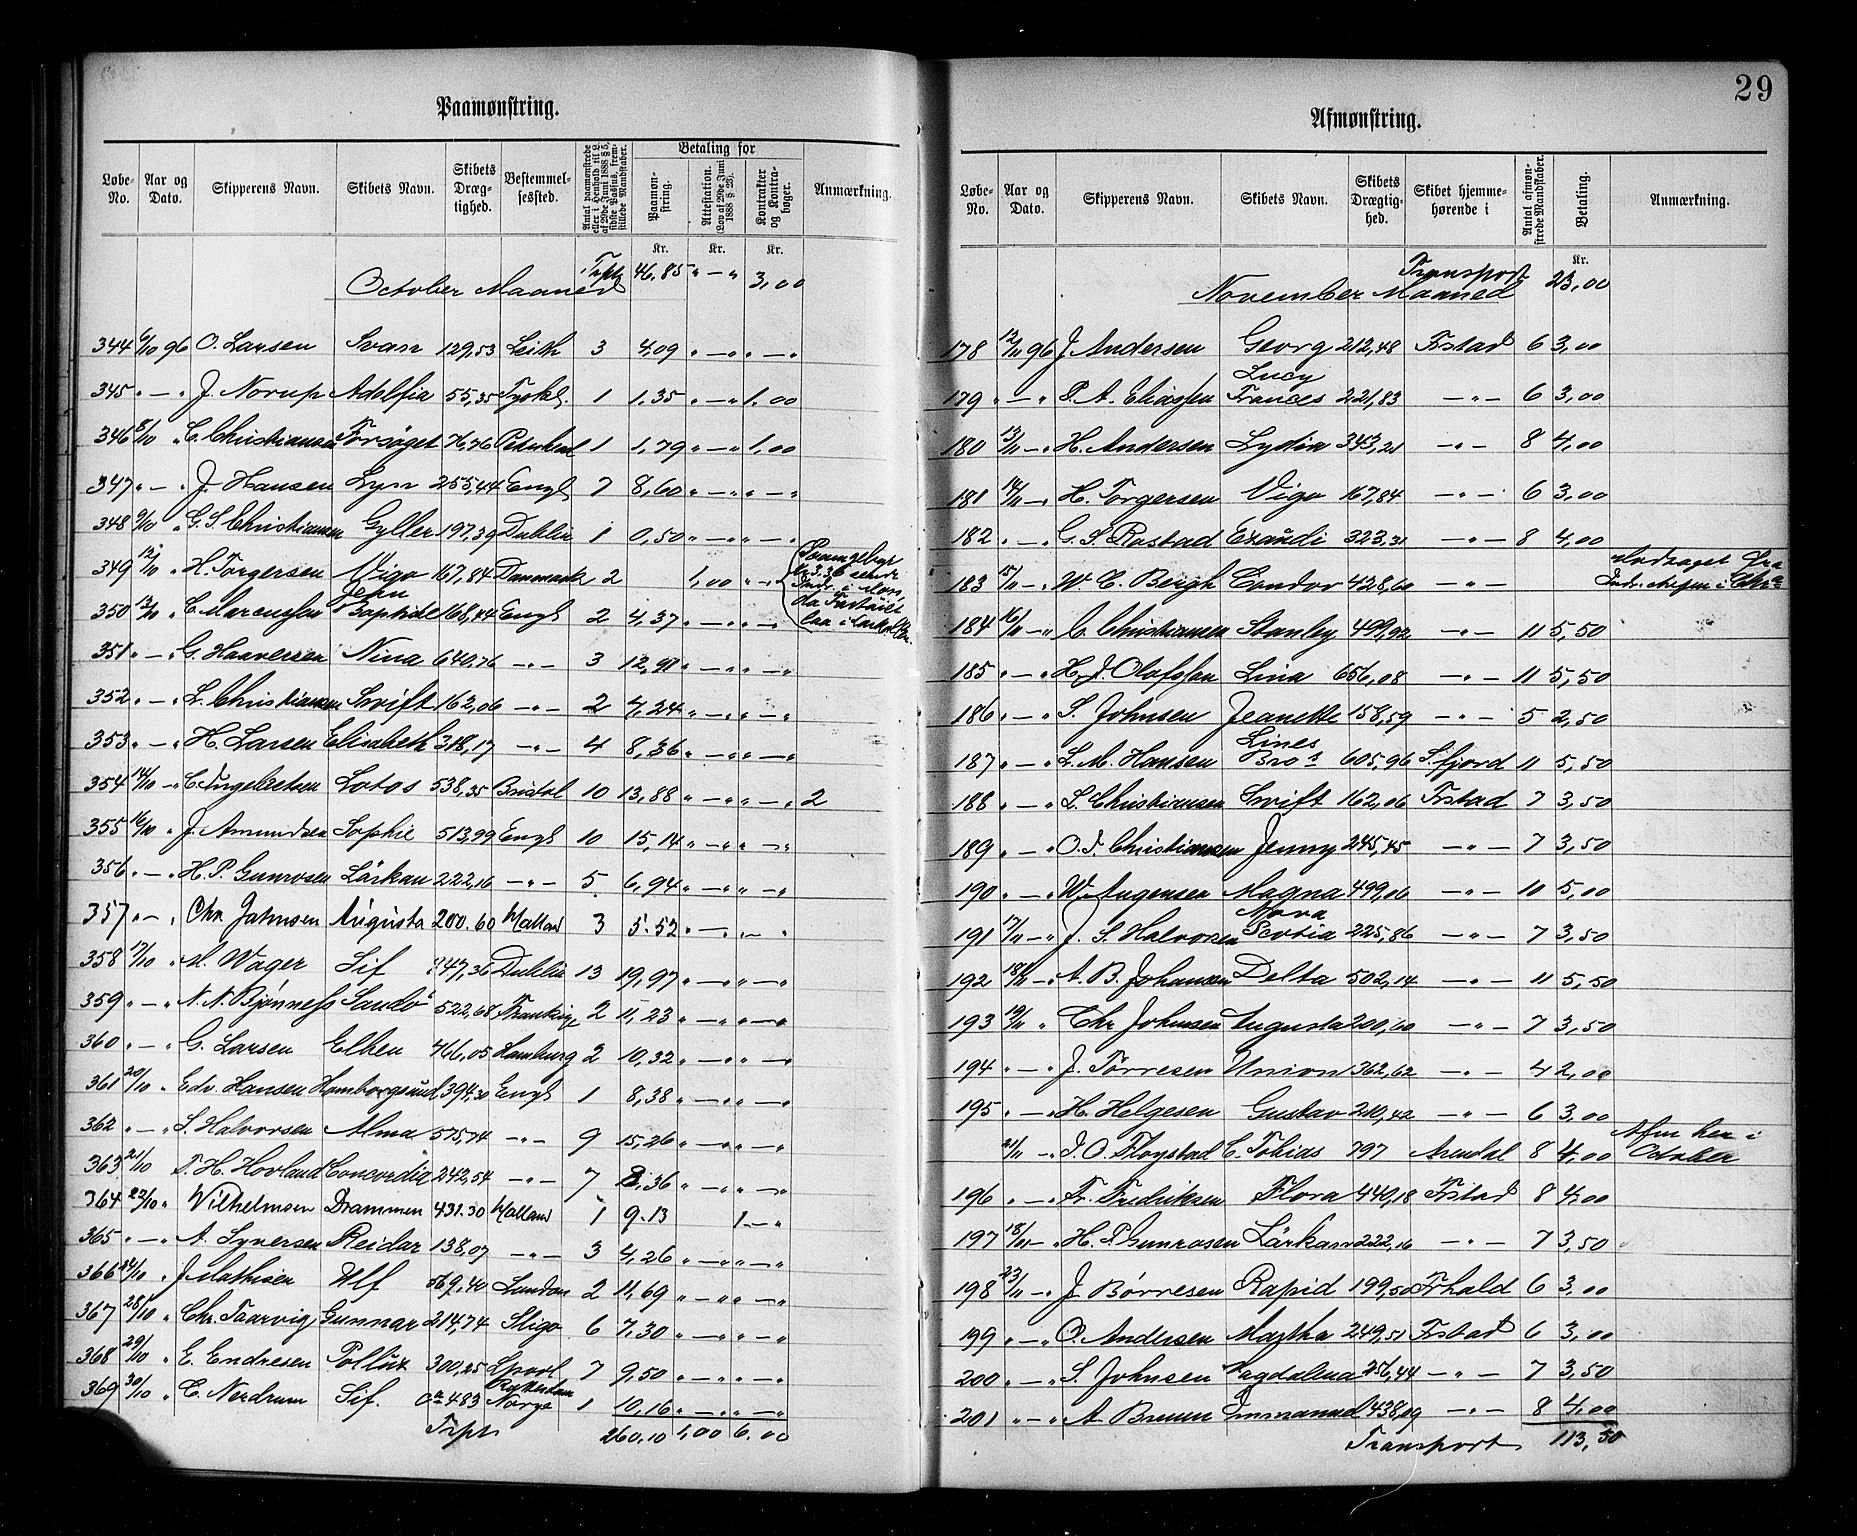 29
Paamønstring.
Løbe-No. Aar og Dato. Skipperens Navn. Skibets Navn. Skibets Dræg-tighed. Bestemmel-sessted. Antal paamønstrede eller i Henhold til L. af 29de Juni 1888 § 5, sidste Passus, frem-stillede Mandskaber. Betaling for Paamøn-string. Attestation. (Lov af 29de Juni 1888 § 23). Kontrakter og Kontra-bøger. Anmærkning.
Kr. Kr. Kr.
October Maaned Trpt 46.85 " — " 3,00
344 6/10 96 O. Larsen Svan 129,53 Leith 3 4,09 " — " " — "
345 " — " J. Norup Adolfia 55,35 Tyskl. 1 1.35 " — " 1.00
346 8/10 " C. Christiansen Forsøget 76,76 1 1,79 " — " 1,00
347 " — " J. Hansen Lyn 255,44 Engl 7 8,60 " — " " — "
348 9/10 " G. S. Christiansen Gyller 197,39 Dublin 1 0,50 " — " " — "
349 12/10 " H. Torgersen Vigo 167,84 Danmark 2 1,00 " — "
350 13/10 " C. Marcussen John Baptist 168,44 Engl 2 4,37 " — " " — "
351 " — " G. Haaversen Nina 640,76 — " — 3 12,91 " — " " — "
352 " — " L. Christiansen Swift 162,06 — " — 2 4,24 " — " " — "
353 " — " H. Larsen Elisabeth 318,17 — " — 4 8,36 " — " " — "
354 14/10 — " C. Engelbretsen Lotos 538,35 Bristol 10 13,88 " — " " — " 2
355 16/10 " J. Amundsen Sophie 513,99 Engl 10 15,14 " — " " — "
356 " — " H. P. Gunrosen Lärkan 222,16 — " — 5 6,94 " — " " — "
357 " — " Chr. Johnsen Augusta 200.60 Holland 3 5.52 " — " " — "
358 17/10 " M. Wager Sif 447,36 Dublin 13 19,97 " — " " — "
359 " — " N. N. Bjønness Sandö 522,68 Frankrig 2 11,23 " — " " — "
360 " — " G. Larsen Elhen 466,05 Hamburg 2 10,32 " — " " — "
361 20/10 " Edv. Hansen Homborgsund 394,30 Engl 1 8,38 " — " " — "
362 " — " S. Halvorsen Alma 575,74 — " — 9 15,26 " — " " — "
363 21/10 T. H. Hovland Concordia 242,54 — " — 7 8,36 " — " " — "
364 22/10 " Wilhelmsen Drammen 431.30 Holland 1 9.13 1 — "
365 " — " A. Syversen Reidar 138,07 — " — 3 4,26 " — " " — "
366 24/10 " J. Mathisen Ulf 569,40 London 2 11,69 " — " " — "
367 28/10 " Chr. Taarvig Gunnar 214,74 Sligo 6 7,30 " — " " — "
368 29/10 " E. Endresen Pollux 300,25 Lpool 7 9,50 " — " " — "
369 30/10 " C. Nerdrum Sif. ca 483 Norge 1 10,16 " — " " — "
Trpt 260,10 1,00 6.00
Afmønstring.
Løbe-No. Aar og Dato. Skipperens Navn. Skibets Navn. Skibets Drægtig-hed. Skibet hjemme-hørende i Antal afmøn-strede Mandskaber. Betaling. Anmærkning.
Kr.
November Maaned Transport 23,00
178 12/11 96 J. Andersen Georg 212,48 Frstad 6 3,00
179 " — " P. A. Eliassen Lucy Frances 221,83 — " — 6 3,00
180 13/11 — " H. Andersen Lydia 343,21 — " — 8 4,00
181 14/11 — " H. Torgersen Vigo 167,84 — " — 6 3,00
182 " — " G. S. Rostad Exaudi 323,31 — " — 8 4,00
183 15/11 — " W. C. Bergh Condor 428,60 — " —
184 16/11 — " C. Christiansen Stanley 499,92 — " — 11 5,50
185 " — " H. J. Olafssen Lina 656,08 — " — 11 5,50
186 " — " S. Johnsen Jeanette 158,59 — " — 5 2,50
187 " — " L. M. Hansen Lines Bros 605,96 S.fjord 11 5,50
188 " — " L. Christiansen Swift 162,06 Frstad 7 3,50
189 " — " O. J. Christiansen Jenny 245,45 — " — 7 3,50
190 " — " W. Augensen Magna 499,06 — " — 10 5,00
191 17/11 — " J. S. Halvorsen Nova Scotia 225,86 — " — 7 3,50
192 18/11 — " A. B. Johansen Delta 502,14 — " — 11 5,50
193 19/11 " Chr. Johnsen Augusta 200,60 — " — 7 3,50
194 " — " J. Torresen Union 362,62 — " — 4 2,00
195 " — " H. Helgesen Gustav 210,42 — " — 6 3,00
21/11 — " J. O. Floystad C. Tobias 797 Arendal 8 4,00 Afm her i October
196 " — " Fr. Fredriksen Flora 440,18 Frstad 8 4,00
197 18/11 — " H. P. Gunrosen Lärkan 222,16 — " — 7 3,50
198 23/11 — " J. Børresen Rapid 199,50 Frhald 6 3,00
199 " — " O. Andersen Martha 249,51 Frstad 6 3,00
200 " — " S. Johnsen Magdalena 256,44 — " — 7 3,50
201 " — " A. Bruun Immanuel 438,09 — " — 8 4,00
Transport 113,50